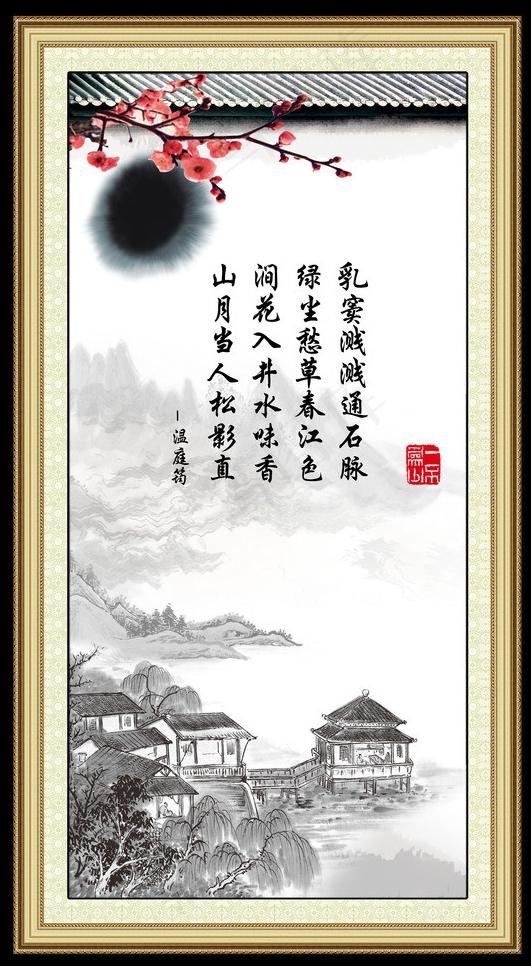 乳窦溅溅通石脉
绿尘愁草春江色
涧花入井水味香
山月当人松影直
—温庭筠